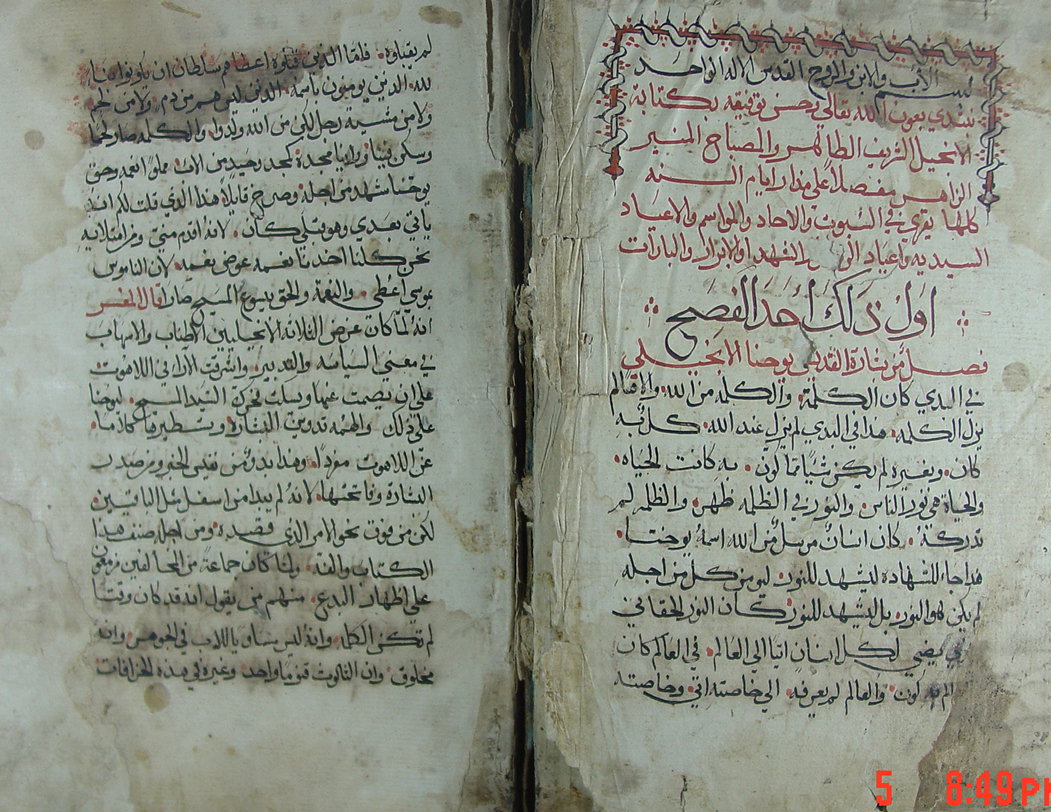 بسم الاب والابن والروح القدس الاله الواحد
نبتدي بعون الله تعالى وحسن توفيقه بكتابة
الانجيل الشريف الطاهر والمصباح المنير
الزاهر مفصلا على مدار ايام السنه
كلها يقرى في السبوت والاحاد والمواسم والاعياد
السيديه واعياد الشهدا والابرار والبارات
اول ذلك احد الفصح
فصل من بشارة القديس يوحنا الانجيلي
في البدي كان الكلمة والكلمه من الله والاقنام
يزل الكلمه هذا في البدي لم يزل عند الله كل به
كان وبغيره لم يكن شيا مما كون به كانت الحياه
والحياة هي نور الناس والنور في الظلمه ظهر والظلمه لم
تدركة كان انسان مرسل من الله اسمه يوحنا
هذا جا للشهاده ليشهد للنور ليومن كل من اجله
لم يكن هو النور بل ليشهد للنور كان النور الحقاني
يضي لكل انسان اتيا الى العالم في العالم كان
العالم به كون والعالم لم يعرفه الي خاصته اتي وخاصته
لم يقبلوه فاما الذين قبلوه اعطاهم سلطان ان يكونوا
لله الذين يومنون باسمه الذين ليس هم من دم ولا من
ولا من مشية رجل لكن من الله ولدوا والكلمه صار لحما
وسكن فينا وراينا مجده كمجد وحيد من الاب مملوا نعمه وحق
يوحنا شهد من اجله وصرح قايلا هذا الذي قلت لكم انه
ياتي بعدي وهو قبلي كان لانه اقدم مني ومن امتلايه
نحن كلنا اخدنا نعمه عوض نعمه لان الناموس
بموسي اعطي والنعمة والحق بيسوع المسيح صارا قال المفسر
انه لما كان غرض الثلاثه الانجيليين الاطناب والاسهاب
في معني السياسه والتدبير واشرقت الارا في اللاهوت
على ان نصمت عنها وسلت تحركة السيد المسيح ليوحنا
على ذلك والهمه تدوين البشاره وتسطيرها كلاما
عن اللاهوت موردا وهذا بدو من نفس الخبر ومن صدر
البشارة وفاتحتها لانه لم يبدا من اسفل مثل الباقيين
لكن من فوق نحو الامر الذي قصده ومن اجله صنف هذا
الكتاب والفه ولما كان جماعة من المخالفين مزمعين
علي اظهار البدع منهم من يقول انه قد كان وقتا
لم تكن الكلمه وانه ليس مساويا للاب في الجوهر وانه
مخلوق وان الثالوث قنوما واحد وغيره في هذه الخرافات
5 8:49 PM